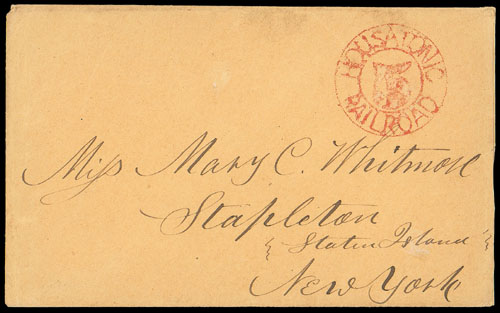 HOUSATONIC
RAILROAD
Miss Mary C. Whitmore
Stapleton
Staten Island
New York